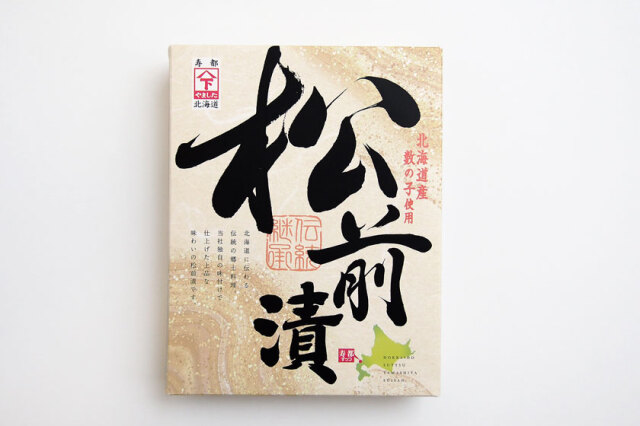 寿都
下
やました
北海道
松前漬
北海道産
数の子使用
伝統
継承
北海道に伝わる
伝統の郷土料理
当社独自の味付けで
仕上げた上品な
味わいの松前漬です。
寿都
HOKKAIDO
SUTTSU
YAMASHITA
SUISAN